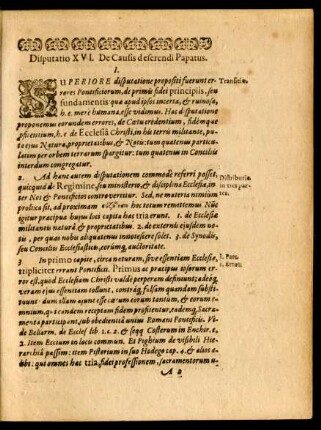 Disputatio XVI. De Causis deserendi Papatus.
I.
SUPERIORE disputatione propositi fuerunt er-
Transitio.
rores Pontificiorum, de primis fidei principiis, seu
fundamentis: quæ apud ipsos incerta, & ruinosa,
h. e. merè humana, esse vidimus. Hac disputatione
proponemus eorundem errores, de Cœtu credentium, fidemque
profitentium, h. e. de Ecclesiâ Christi, in his terris militante, pu-
ta ejus Naturâ, proprietatibus, & Notis: tum quatenus particu-
latim per orbem terrarum spargitur: tum quatenus in Conciliis
interdum congregatur.
2. Ad hanc autem disputationem commodè referri posset,
quicquid de Regimine, seu ministerio, & disciplina Ecclesiæ, in-
Distributio
in tres par-
tes.
ter Nos & Pontificios controvertitur. Sed, ne materia nimium
prolixa sit, ad proximam hoc totum remittemus. Nunc
igitur præcipua hujus loci capita hæc tria erunt. 1. de Ecclesiâ
militantis naturâ & proprietatibus. 2. de externis ejusdem no-
tis, per quas nobis aliquatenus innotescere solet. 3. de Synodis,
seu Conciliis Ecclesiasticis, eorumque auctoritate.
3 In primo capite, circa naturam, sive essentiam Ecclesiæ,
1. Pars.
tripliciter errant Pontificii. Primus ac præcipuus ipsorum er-
1. Error.
ror est, quòd Ecclesiam Christi valdè perperam definiunt; adeóque
veram ejus essentiam tollunt, contráque falsam quandam substi-
tuunt: dum illam ajunt esse cœtum eorum tantùm, & eorum o-
mnium, qui eandem receptam fidem profitentur, eademque Sacra-
menta participant, sub obedientiâ unius Romani Pontificis. Vi-
de Bellarm. de Eccles. lib. 3. c. 2. & seqq. Costerum in Enchir. c.
2. Item Eccium in locis commun. Et Pighium de visibili Hie-
rarchiâ passim: item Pistorium in suo Hodego cap. 4. & alios a-
libi: qui omnes hæc tria, fidei professionem, sacramentorum u-
A 2